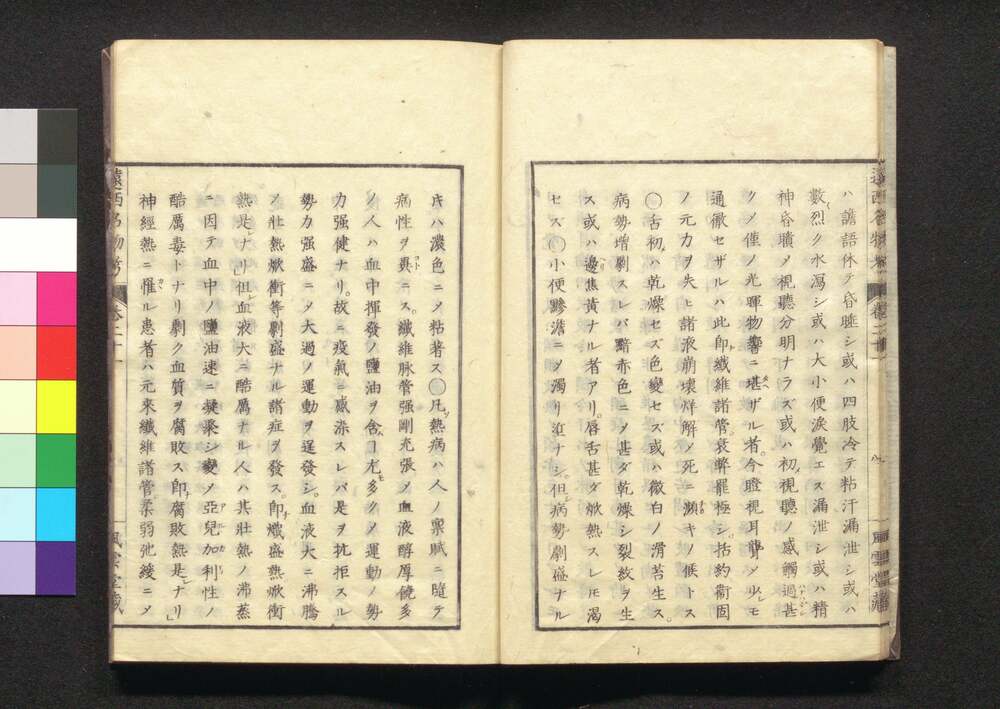 ハ譫語休テ昏睡シ或ハ四肢冷テ粘汗漏泄シ或ハ
數烈ク水瀉シ或ハ大小便涙覺エス漏泄シ或ハ精
神昏聵メ視聽分明ナラズ或ハ初視聽ノ感觸過甚
クメ僅ノ光暉物響ニ堪ザル者今瞪視耳聾メ少モ
通徹セザルハ此即纖維諸管衰弊罷極シ括約衞固
ノ元力ヲ失ヒ諸液崩壊烊解メ死ニ瀕キノ候トス
◯舌初ハ乾燥セズ色變セズ或ハ微白ノ滑苔生ス。
病勢增劇スレバ黯赤色ニメ甚ダ乾燥シ裂紋ヲ生
ス或ハ邊焦黄ナル者アリ。唇舌甚ダ焮熱スレモ渇
セス◯小便黲濃ニメ濁リ渣ナシ。但病勢劇盛ナル
片ハ濃色ニメ粘著ス◯凡熱病ハ人ノ禀賦ニ隨テ
病性ヲ異ニス。纖維脉管强剛充張メ血液醇厚饒多
ノ人ハ血中揮發ノ鹽油ヲ含ヿ尤多クメ運動ノ勢
力强健ナリ。故ニ疫氣ニ感染スレバ是ヲ抗拒スル
勢力强盛ニメ大過ノ運動ヲ逞發シ。血液大ニ沸騰
メ壯熱焮衝等劇盛ナル諸症ヲ發ス。即熾盛熱焮衝
熱是ナリ」但血液大ニ酷厲ナル人ハ其壯熱ノ沸蒸
ニ因テ血中ノ鹽油速ニ凝聚シ變メ亞兒加利性ノ
酷厲毒トナリ劇ク血質ヲ腐敗ス即腐敗熱是ナリ」
神經熱ニ罹ル患者ハ元來纖維諸管柔弱弛緩ニメ